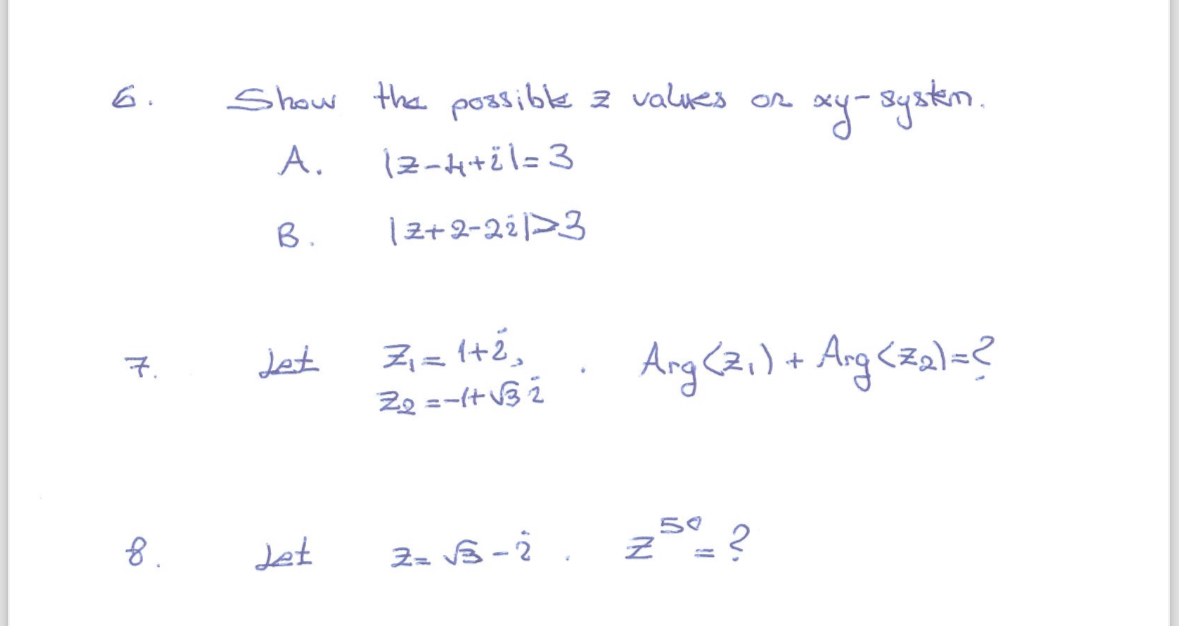 6. Show the possible z values on xy-system.
A. |z-4+i|=3
B. |z+2-2i|>3
7. Let z₁=1+i, . Arg(z₁)+Arg(z₂)=?
z₂=-1+√3 i
8. Let z=√3-i . z⁵⁰=?